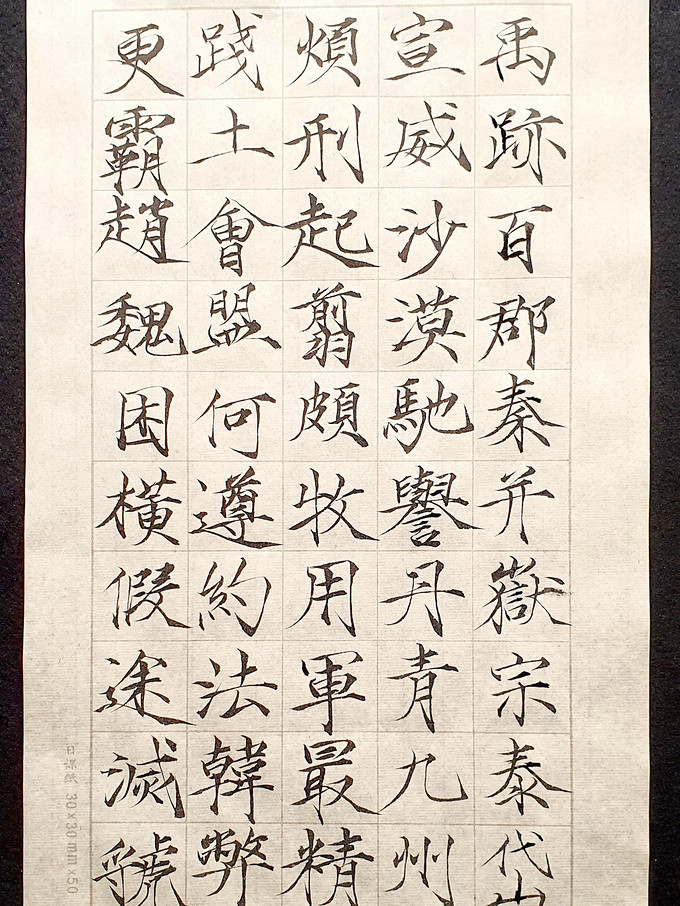 禹跡百郡秦并嶽宗泰岱
宣威沙漠馳譽丹青九州
煩刑起翦頗牧用軍最精
踐土會盟何遵約法韓弊
更霸趙魏困橫假途滅虢
日课纸 30×30mm×50